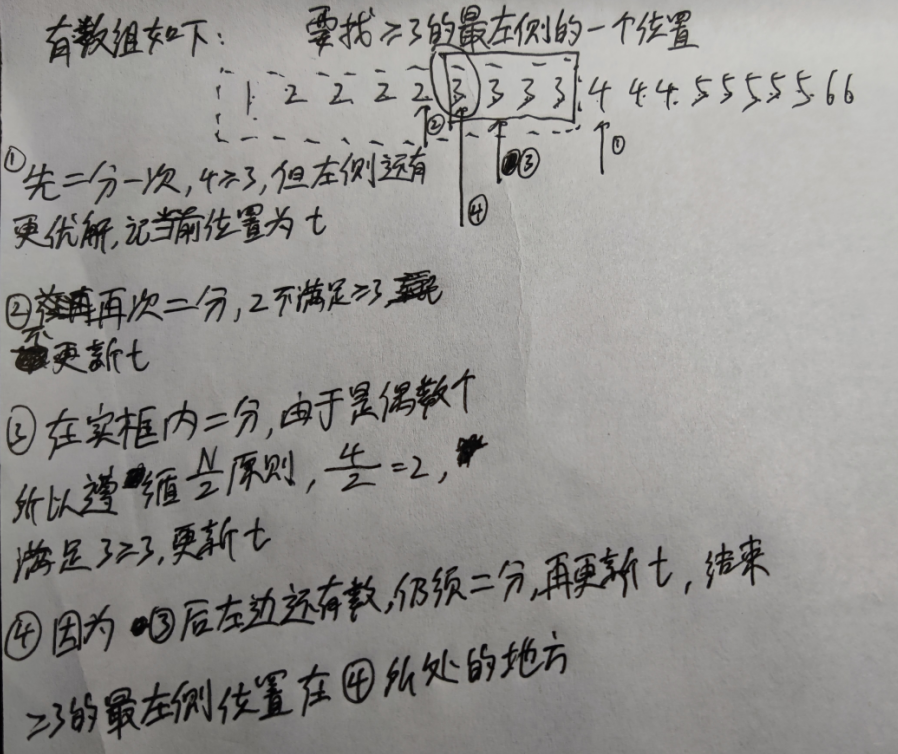 有数组如下: 要找≥3的最左侧的一个位置
1 2 2 2 2 3 3 3 3 4 4 4 5 5 5 5 5 6 6
② ③ ① ④
①先二分一次,4≥3,但左侧还有
更优解,记当前位置为t
②再次二分,2不满足≥3,
不更新t
③在实框内二分,由于是偶数个
所以遵循N/2原则,4/2=2,
满足3≥3,更新t
④因为③后左边还有数,仍须二分,再更新t,结束
≥3的最左侧位置在④所处的地方